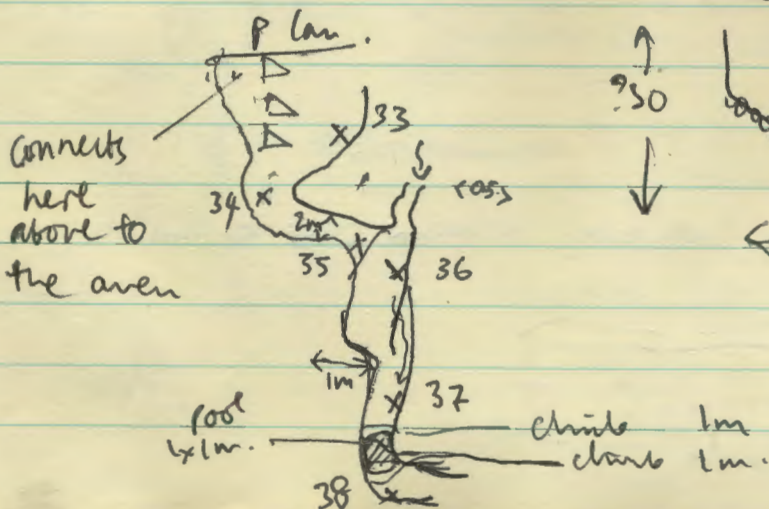 P Lan.
33
?30
Connects
here
above to
the aven
34
<0.5>
2m
35
36
1m
37
pool
1x1m.
climb 1m
climb 1m.
38